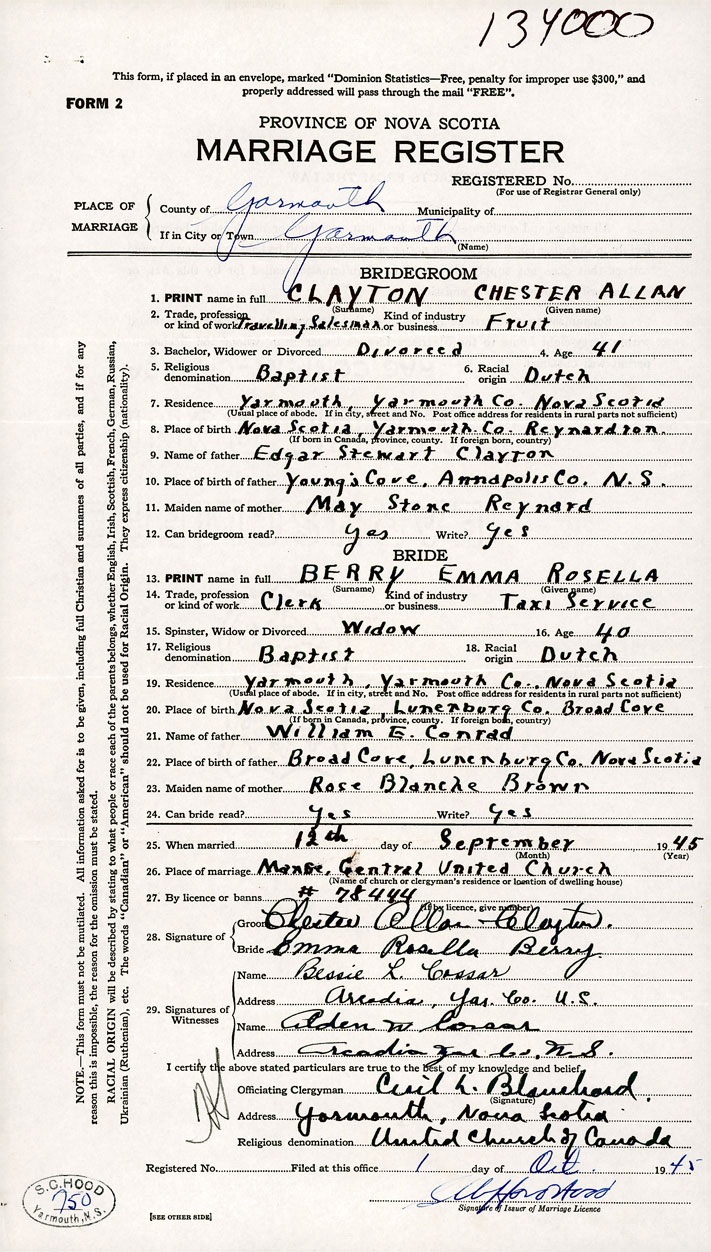 134000
This form, if placed in an envelope, marked "Dominion Statistics—Free, penalty for improper use $300," and
properly addressed will pass through the mail "FREE".
FORM 2
PROVINCE OF NOVA SCOTIA
MARRIAGE REGISTER
REGISTERED No.
(For use of Registrar General only)
PLACE OF MARRIAGE
County of Yarmouth Municipality of
If in City or Town Yarmouth
(Name)
BRIDEGROOM
1. PRINT name in full CLAYTON CHESTER ALLAN
(Surname) (Given name)
2. Trade, profession or kind of work Travelling Salesman Kind of industry or business Fruit
3. Bachelor, Widower or Divorced Divorced 4. Age 41
5. Religious denomination Baptist 6. Racial origin Dutch
7. Residence Yarmouth, Yarmouth Co. Nova Scotia
(Usual place of abode. If in city, street and No. Post office address for residents in rural parts not sufficient)
8. Place of birth Nova Scotia, Yarmouth Co. Reynardton
(If born in Canada, province, county. If foreign born, country)
9. Name of father Edgar Stewart Clayton
10. Place of birth of father Young's Cove, Annapolis Co. N.S.
11. Maiden name of mother May Stone Reynard
12. Can bridegroom read? yes Write? yes
BRIDE
13. PRINT name in full BERRY EMMA ROSELLA
(Surname) (Given name)
14. Trade, profession or kind of work Clerk Kind of industry or business Taxi Service
15. Spinster, Widow or Divorced Widow 16. Age 40
17. Religious denomination Baptist 18. Racial origin Dutch
19. Residence Yarmouth, Yarmouth Co., Nova Scotia
(Usual place of abode. If in city, street and No. Post office address for residents in rural parts not sufficient)
20. Place of birth Nova Scotia, Lunenburg Co. Broad Cove
(If born in Canada, province, county. If foreign born, country)
21. Name of father William E. Conrad
22. Place of birth of father Broad Cove, Lunenburg Co. Nova Scotia
23. Maiden name of mother Rose Blanche Brown
24. Can bride read? yes Write? yes
25. When married 12th day of September 1945
(Month) (Year)
26. Place of marriage Manse, Central United Church
(Name of church or clergyman's residence or location of dwelling house)
27. By licence or banns # 78444
(If by licence, give number)
28. Signature of
Groom Chester Allan Clayton.
Bride Emma Rosella Berry
29. Signatures of Witnesses
Name Bessie L. Cossar
Address Arcadia, Yar. Co. N.S.
Name Alden W Cossar
Address Arcadia Yar Co. N.S.
I certify the above stated particulars are true to the best of my knowledge and belief.
Officiating Clergyman Cecil L. Blanchard.
(Signature)
Address Yarmouth, Nova Scotia
Religious denomination United Church of Canada
Registered No. Filed at this office 1 day of Oct. 1945
Signature of Issuer of Marriage Licence
[SEE OTHER SIDE]
S.C. HOOD
750
Yarmouth, N.S.
NOTE.—This form must not be mutilated. All information asked for is to be given, including full Christian and surnames of all parties, and if for any
reason this is impossible, the reason for the omission must be stated.
RACIAL ORIGIN will be described by stating to what people or race each of the parents belongs, whether English, Irish, Scottish, French, German, Russian,
Ukrainian (Ruthenian), etc. The words "Canadian" or "American" should not be used for Racial Origin. They express citizenship (nationality).